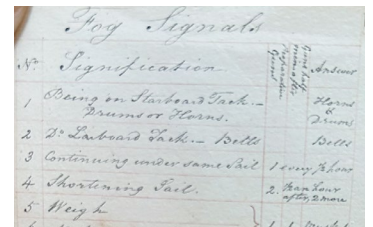 Fog Signals
No. Signification. Preparative Guns Answer
1 Being on Starboard Tack.- Horns &
Drums or Horns. Drums
2 Do. Larboard Tack.- Bells Bells
3 Continuing under same Sail 1 every ½ hour
4 Shortening Sail. 2. hour
after, 2 more
5 Weigh